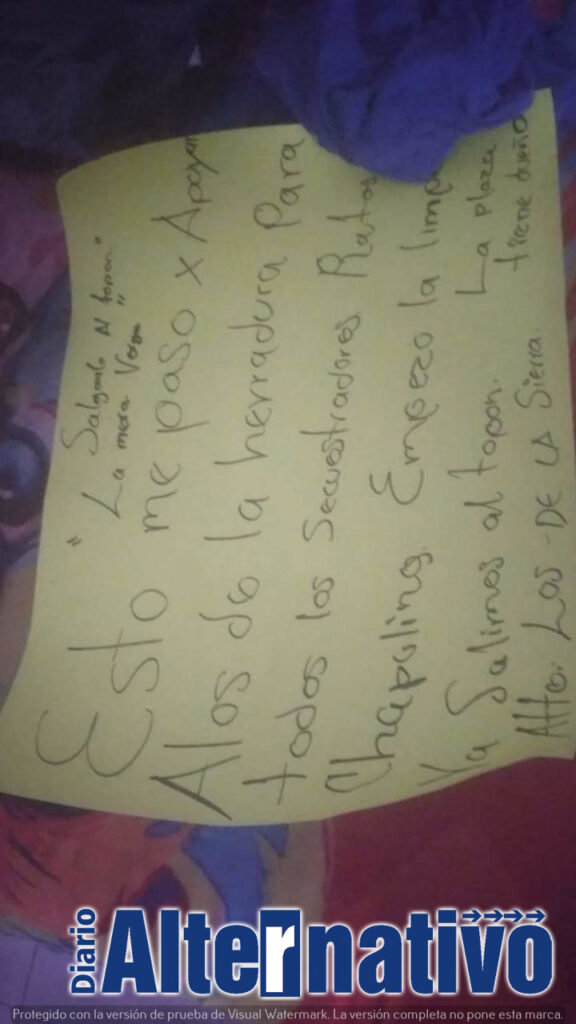 "Salgamos Al topon."
"La mera Verga"
Esto me paso x Apoyar
Alos de la herradura Para
todos los Secuestradores Ratas
Chapuling. Empezo la limpia
Ya Salimos al topon. La plaza
tiene dueño
Atte: Los - DE LA Sierra.
Diario
Alternativo
Protegido con la versión de prueba de Visual Watermark. La versión completa no pone esta marca.